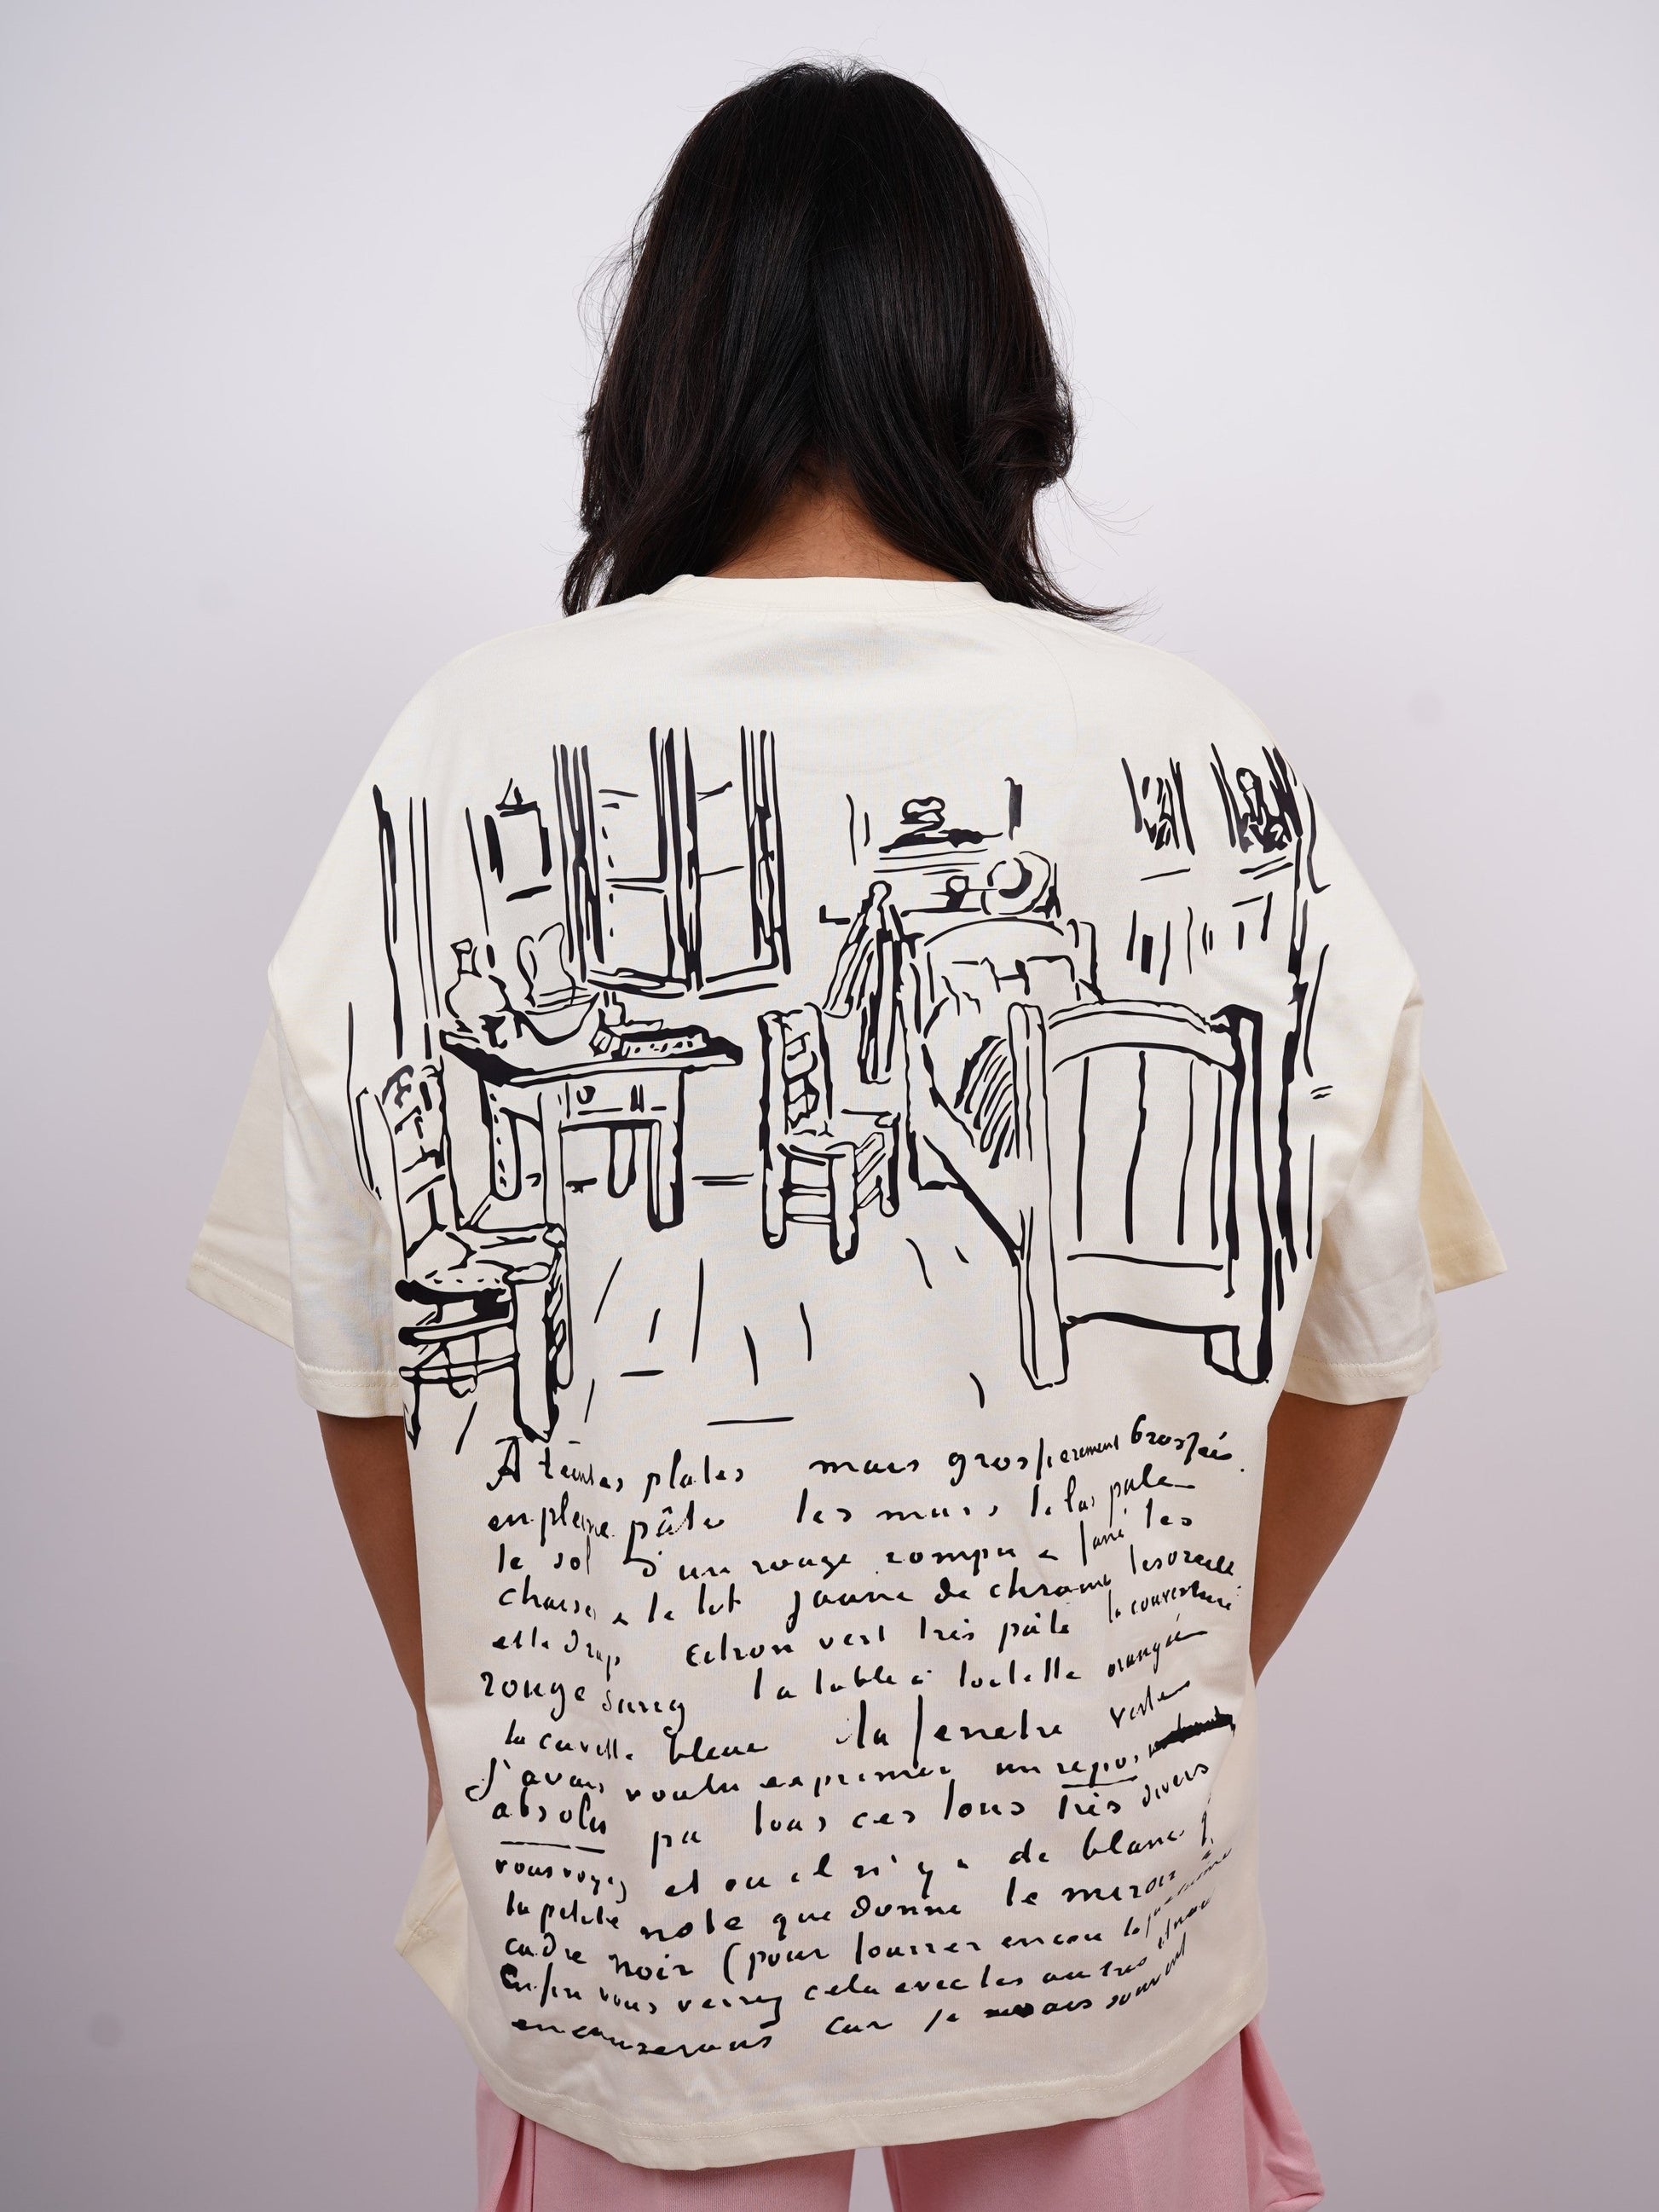 A teintes plates mais grossierement brossées
en pleine pâte les murs lilas pale
le sol d'un rouge rompu & fané les
chaises & le lit jaune de chrome les oreillers
et le drap citron vert très pâle la couverture
rouge sang la table à toilette orangée
la cuvette bleue la fenetre verte
J'avais voulu exprimer un repos
absolu par tous ces tons très divers
vous voyez et ou il n'y a de blanc q
la petite note que donne le miroir à
cadre noir (pour fourrer encore la
Enfin vous verrez cela avec les autres et nous
en causerons car je ne sais souvent